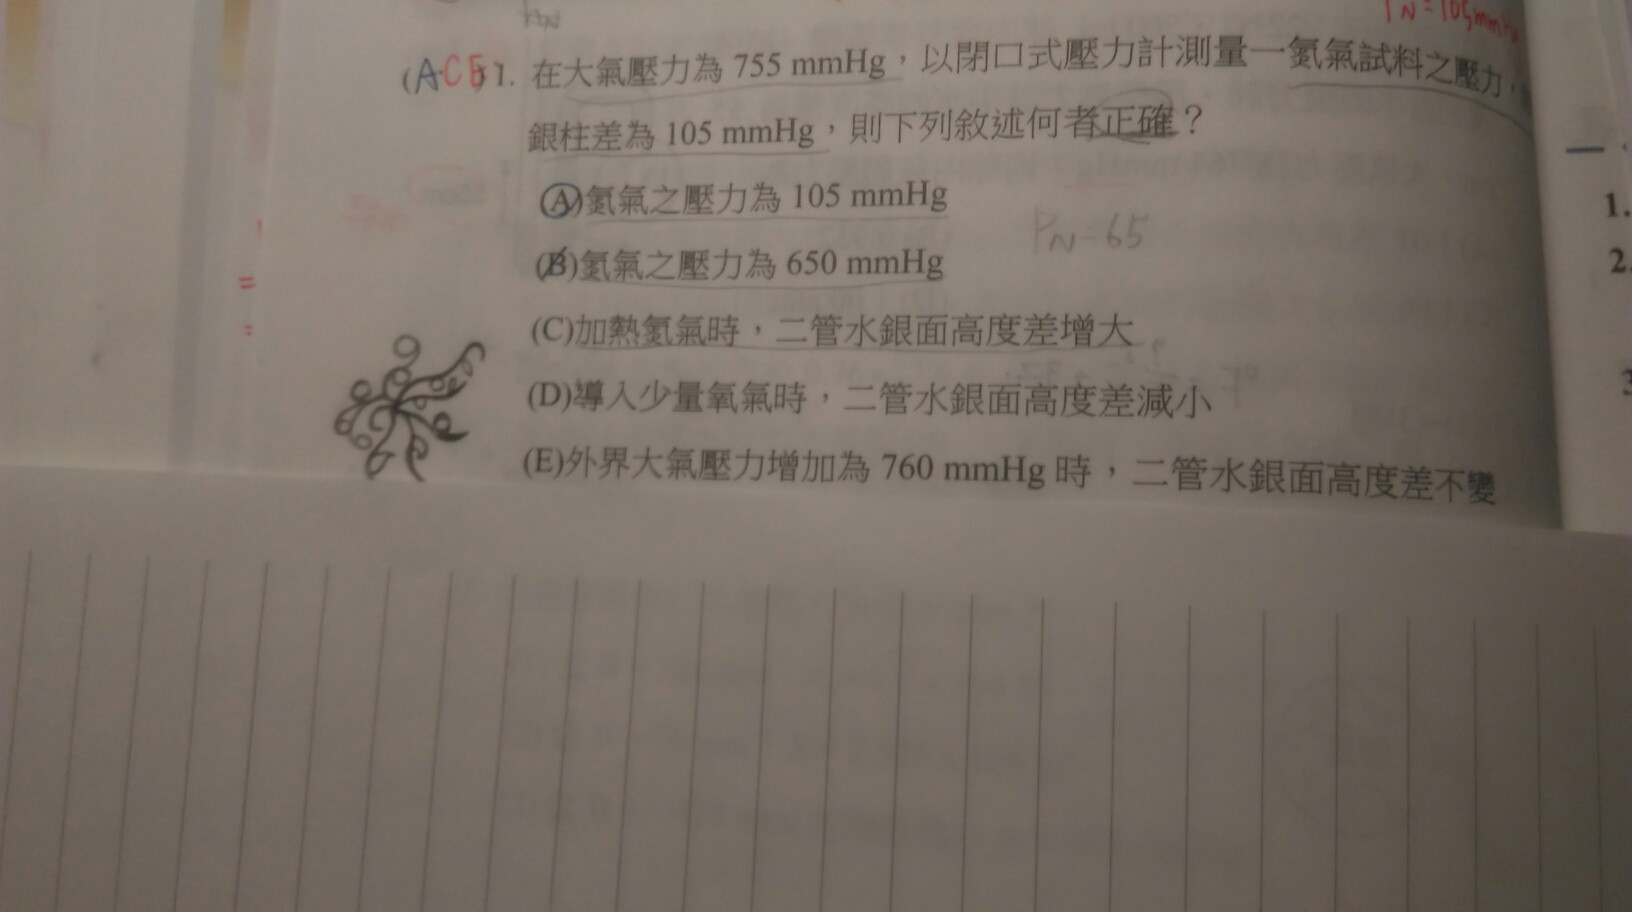 PN=105mmHg
(ACE)1. 在大氣壓力為 755 mmHg，以閉口式壓力計測量一氮氣試料之壓力，
銀柱差為 105 mmHg，則下列敘述何者正確？
(A)氮氣之壓力為 105 mmHg
PN-65
(B)氮氣之壓力為 650 mmHg
(C)加熱氮氣時，二管水銀面高度差增大
(D)導入少量氧氣時，二管水銀面高度差減小
(E)外界大氣壓力增加為 760 mmHg 時，二管水銀面高度差不變
1.
2.